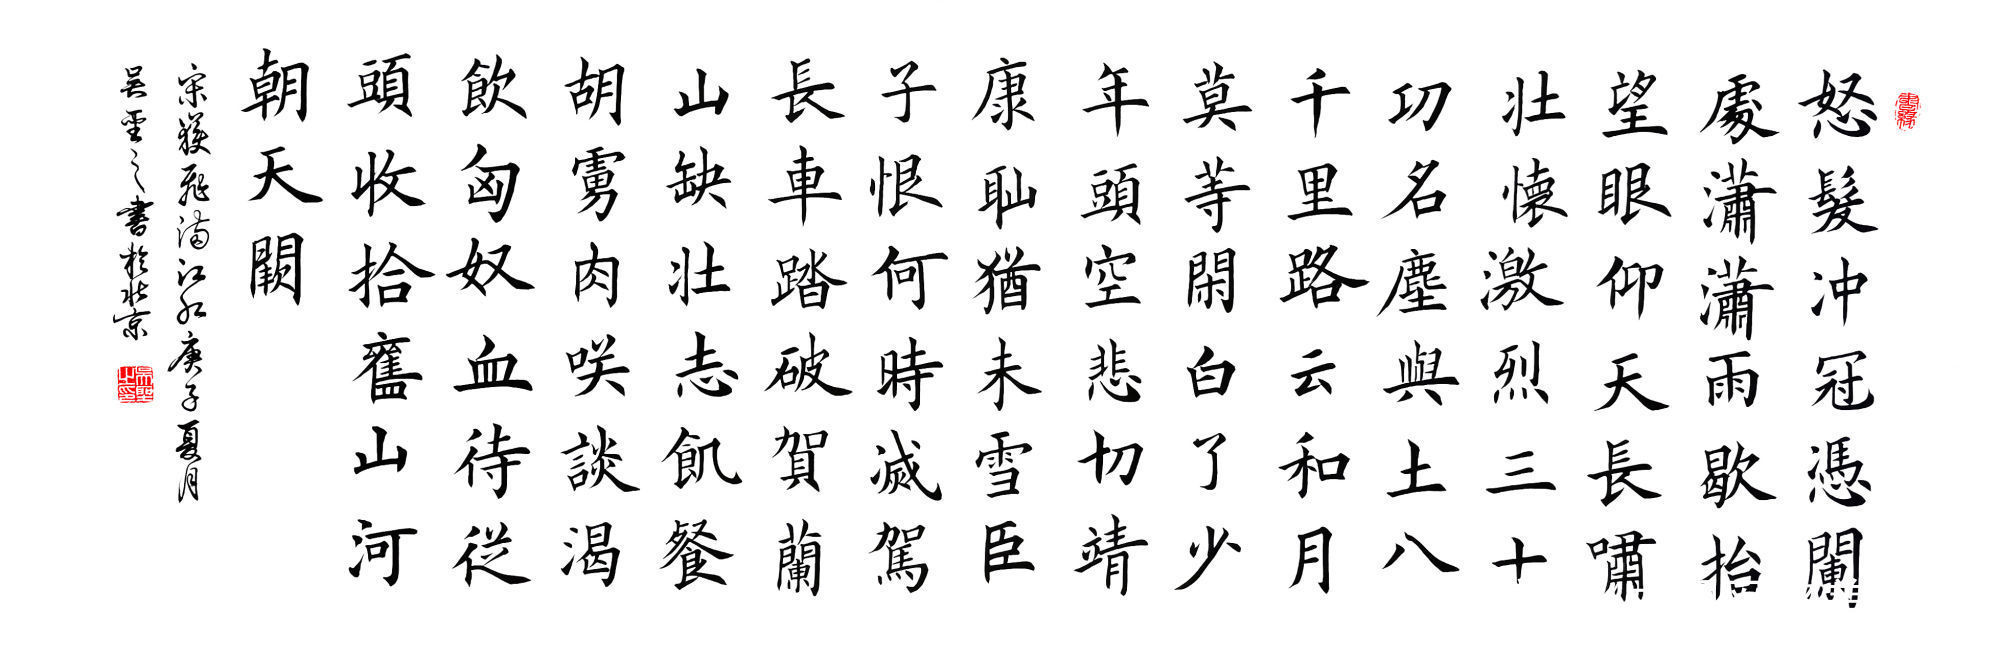 怒髮冲冠憑闌
處瀟瀟雨歇抬
望眼仰天長嘯
壯懷激烈三十
功名塵與土八
千里路云和月
莫等閑白了少
年頭空悲切靖
康耻猶未雪臣
子恨何時滅駕
長車踏破賀蘭
山缺壯志飢餐
胡虜肉咲談渴
飲匈奴血待從
頭收拾舊山河
朝天闕
宋嶽飛滿江紅庚子夏月
吳聖之書於北京